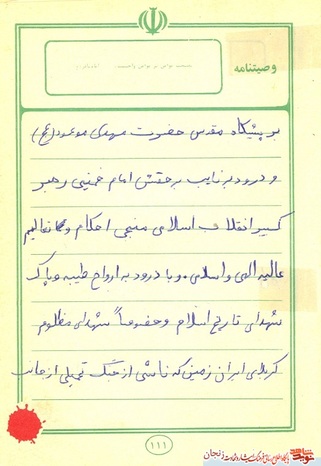 وصیتنامه
بر پیشگاه مقدس حضرت مهدی موعود (عج)
و درود بر نایب بر حقش امام خمینی رهبر
کبیر انقلاب اسلامی منجی احکام و تعالیم
عالیه الهی و اسلامی. و با درود به ارواح طیبه و پاک
شهدای تاریخ اسلام و خصوصاً شهدای مظلوم
کربلای ایران زمین که ناشی از جنگ تحمیلی از جانب
۱۱۱
نوید شاهد
پایگاه اطلاع رسانی فرهنگ ایثار و شهادت زنجان